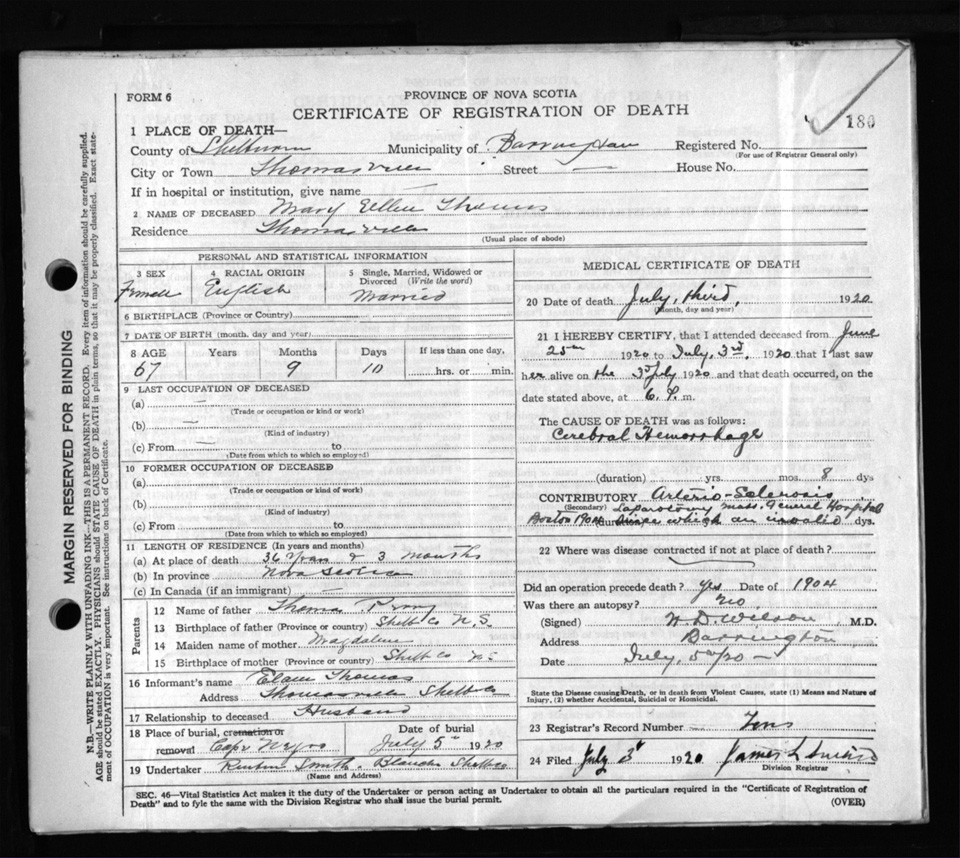 PROVINCE OF NOVA SCOTIA
FORM 6
CERTIFICATE OF REGISTRATION OF DEATH
180
1 PLACE OF DEATH—
County of Municipality of Barrington Registered No.
(For use of Registrar General only)
City or Town Thomasville Street — House No.
If in hospital or institution, give name —
2 NAME OF DECEASED Mary Ellen Thomas
Residence Thomasville
(Usual place of abode)
PERSONAL AND STATISTICAL INFORMATION
3 SEX 4 RACIAL ORIGIN 5 Single, Married, Widowed or Divorced (Write the word)
Female English Married
6 BIRTHPLACE (Province or Country)
7 DATE OF BIRTH (month, day and year)
8 AGE Years Months Days If less than one day,
67 9 10 hrs. or min.
9 LAST OCCUPATION OF DECEASED
(a) —
(Trade or occupation or kind or work)
(b) —
(Kind of industry)
(c) From — to
(Date from which to which so employed)
10 FORMER OCCUPATION OF DECEASED
(a)
(Trade or occupation or kind of work)
(b)
(Kind of industry)
(c) From to
(Date from which to which so employed)
11 LENGTH OF RESIDENCE (In years and months)
(a) At place of death 36 years & 3 months
(b) In province Nova Scotia
(c) In Canada (if an immigrant) —
Parents
12 Name of father Thomas
13 Birthplace of father (Province or country) Shelb Co N.S.
14 Maiden name of mother Magdalene
15 Birthplace of mother (Province or country) Shelb Co NS
16 Informant's name Thomas
Address Thomasville Shelb Co
17 Relationship to deceased Husband
18 Place of burial, cremation or removal Cape Negro Date of burial July 5 1920
19 Undertaker Reuben Smith Blanche Shelb Co
(Name and Address)
MEDICAL CERTIFICATE OF DEATH
20 Date of death July, third, 1920
(Month, day and year)
21 I HEREBY CERTIFY, that I attended deceased from June
25th 1920 to July, 3rd, 1920 that I last saw
her alive on the 3rd July 1920 and that death occurred, on the
date stated above, at 6. P. m.
The CAUSE OF DEATH was as follows:
Cerebral Hemorrhage
(duration) yrs. mos. 8 dys
CONTRIBUTORY Arterio-Sclerosis
(Secondary) Laparotomy Mass. General Hospital
Boston 1904 since which an invalid dys.
22 Where was disease contracted if not at place of death?
Did an operation precede death? Yes Date of 1904
Was there an autopsy? No
(Signed) Wilson M.D.
Address Barrington
Date July, 5th/20 —
State the Disease causing Death, or in death from Violent Causes, state (1) Means and Nature of
Injury, (2) whether Accidental, Suicidal or Homicidal.
23 Registrar's Record Number —
24 Filed July 1920 James
Division Registrar
SEC. 46—Vital Statistics Act makes it the duty of the Undertaker or person acting as Undertaker to obtain all the particulars required in the "Certificate of Registration of
Death" and to fyle the same with the Division Registrar who shall issue the burial permit.
(OVER)
MARGIN RESERVED FOR BINDING
N.B.—WRITE PLAINLY WITH UNFADING INK—THIS IS A PERMANENT RECORD. Every item of information should be carefully supplied.
AGE should be stated EXACTLY. PHYSICIANS should STATE CAUSE OF DEATH in plain terms, so that it may be properly classified. Exact state-
ment of OCCUPATION is very important. See instructions on back of Certificate.